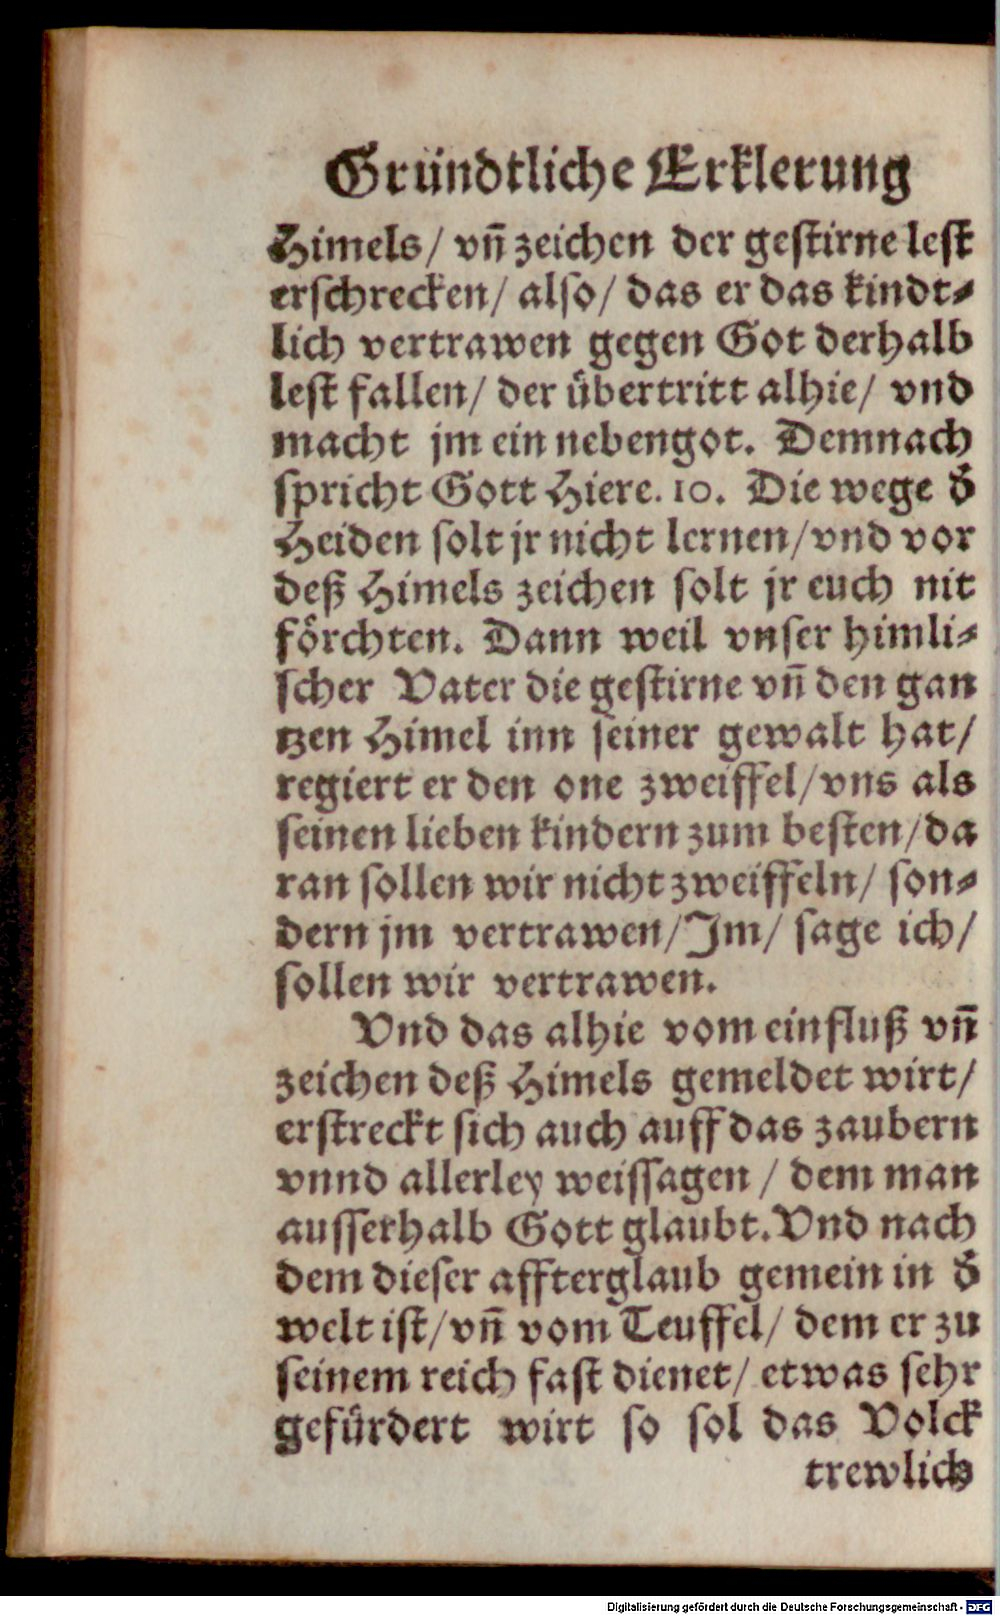 Gründtliche Erklerung
Himels/ vñ zeichen der gestirne lest
erschrecken/ also/ das er das kindt⸗
lich vertrawen gegen Got derhalb
lest fallen/ der übertritt alhie/ vnd
macht jm ein nebengot. Demnach
spricht Gott Hiere. 10. Die wege d̕
Heiden solt jr nicht lernen/vnd vor
deß Himels zeichen solt jr euch nit
förchten. Dann weil vnser himli⸗
scher Vater die gestirne vñ den gan
tzen Himel inn seiner gewalt hat/
regiert er den one zweiffel/vns als
seinen lieben kindern zum besten/da
ran sollen wir nicht zweiffeln/ son⸗
dern jm vertrawen/Im/ sage ich/
sollen wir vertrawen.
Vnd das alhie vom einfluß vñ
zeichen deß Himels gemeldet wirt/
erstreckt sich auch auff das zaubern
vnnd allerley weissagen / dem man
ausserhalb Gott glaubt. Vnd nach
dem dieser affterglaub gemein in d̕
welt ist/vñ vom Teuffel/ dem er zu
seinem reich fast dienet/ etwas sehr
gefürdert wirt so sol das Volck
trewlich
Digitalisierung gefördert durch die Deutsche Forschungsgemeinschaft - DFG